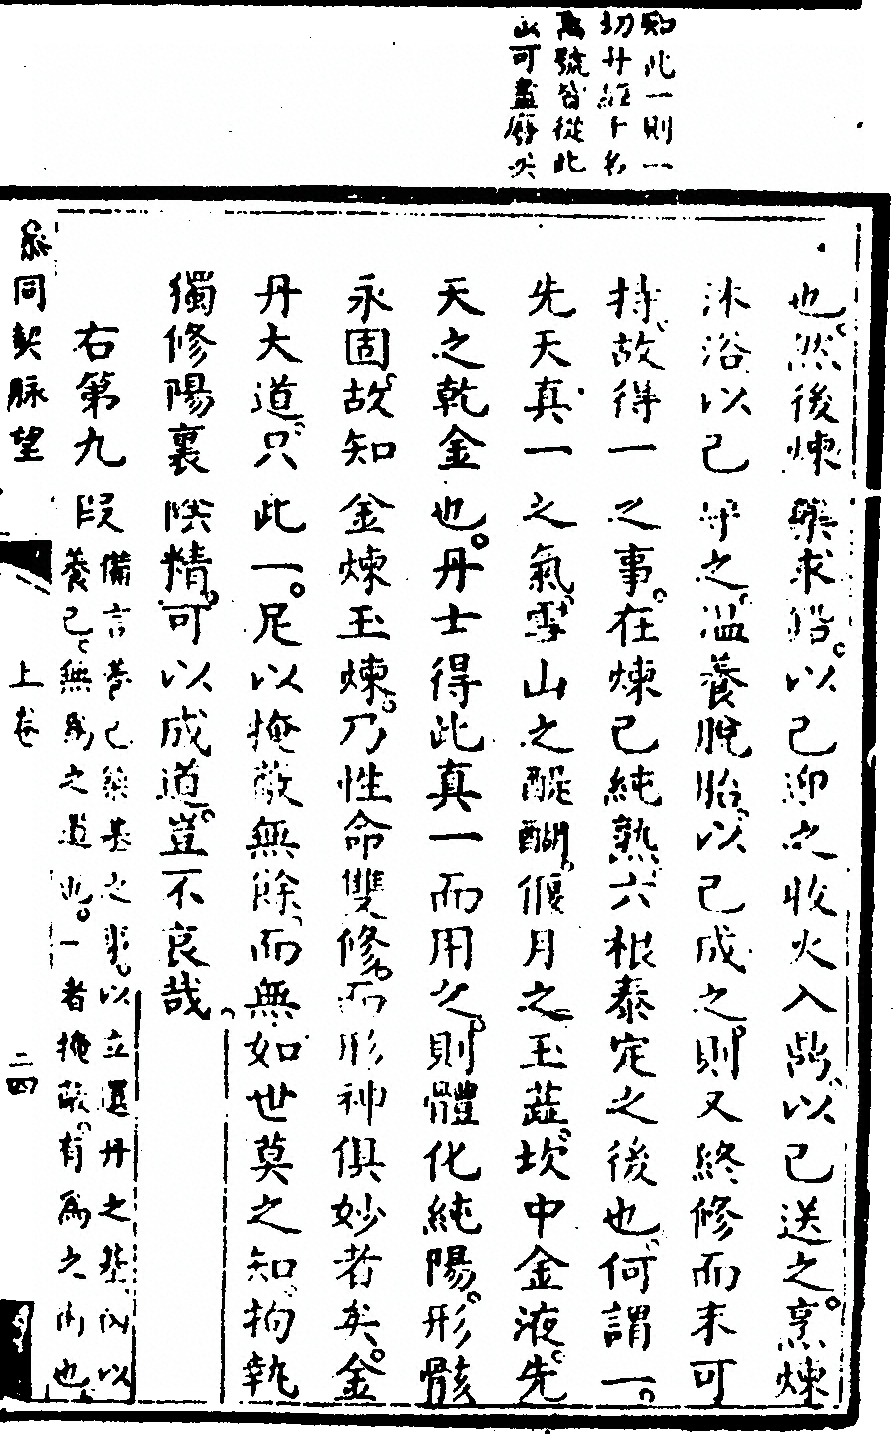 知此一則一
切丹經千名
萬號皆從此
出可盡廢矣
也然後煉藥求鉛以己迎之收火入鼎以己送之烹煉
沐浴以己守之溫養脫胎以己成之則又終修而未可
持故得一之事在煉己純熟六根泰定之後也何謂一
先天真一之氣雪山之醍醐偃月之玉蕋坎中金液先
天之乾金也丹士得此真一而用之則體化純陽形骸
永固故知金煉玉煉乃性命雙修而形神俱妙者矣金
丹大道只此一。尼以掩蔽無餘而無如世莫之知拘執
獨修陽裏陰精可以成道豈不哀哉
右第九段
備言養己築基之事以立還丹之基內以
養己無為之道也一者掩蔽有為之術也
參同契脉望
上卷
二四